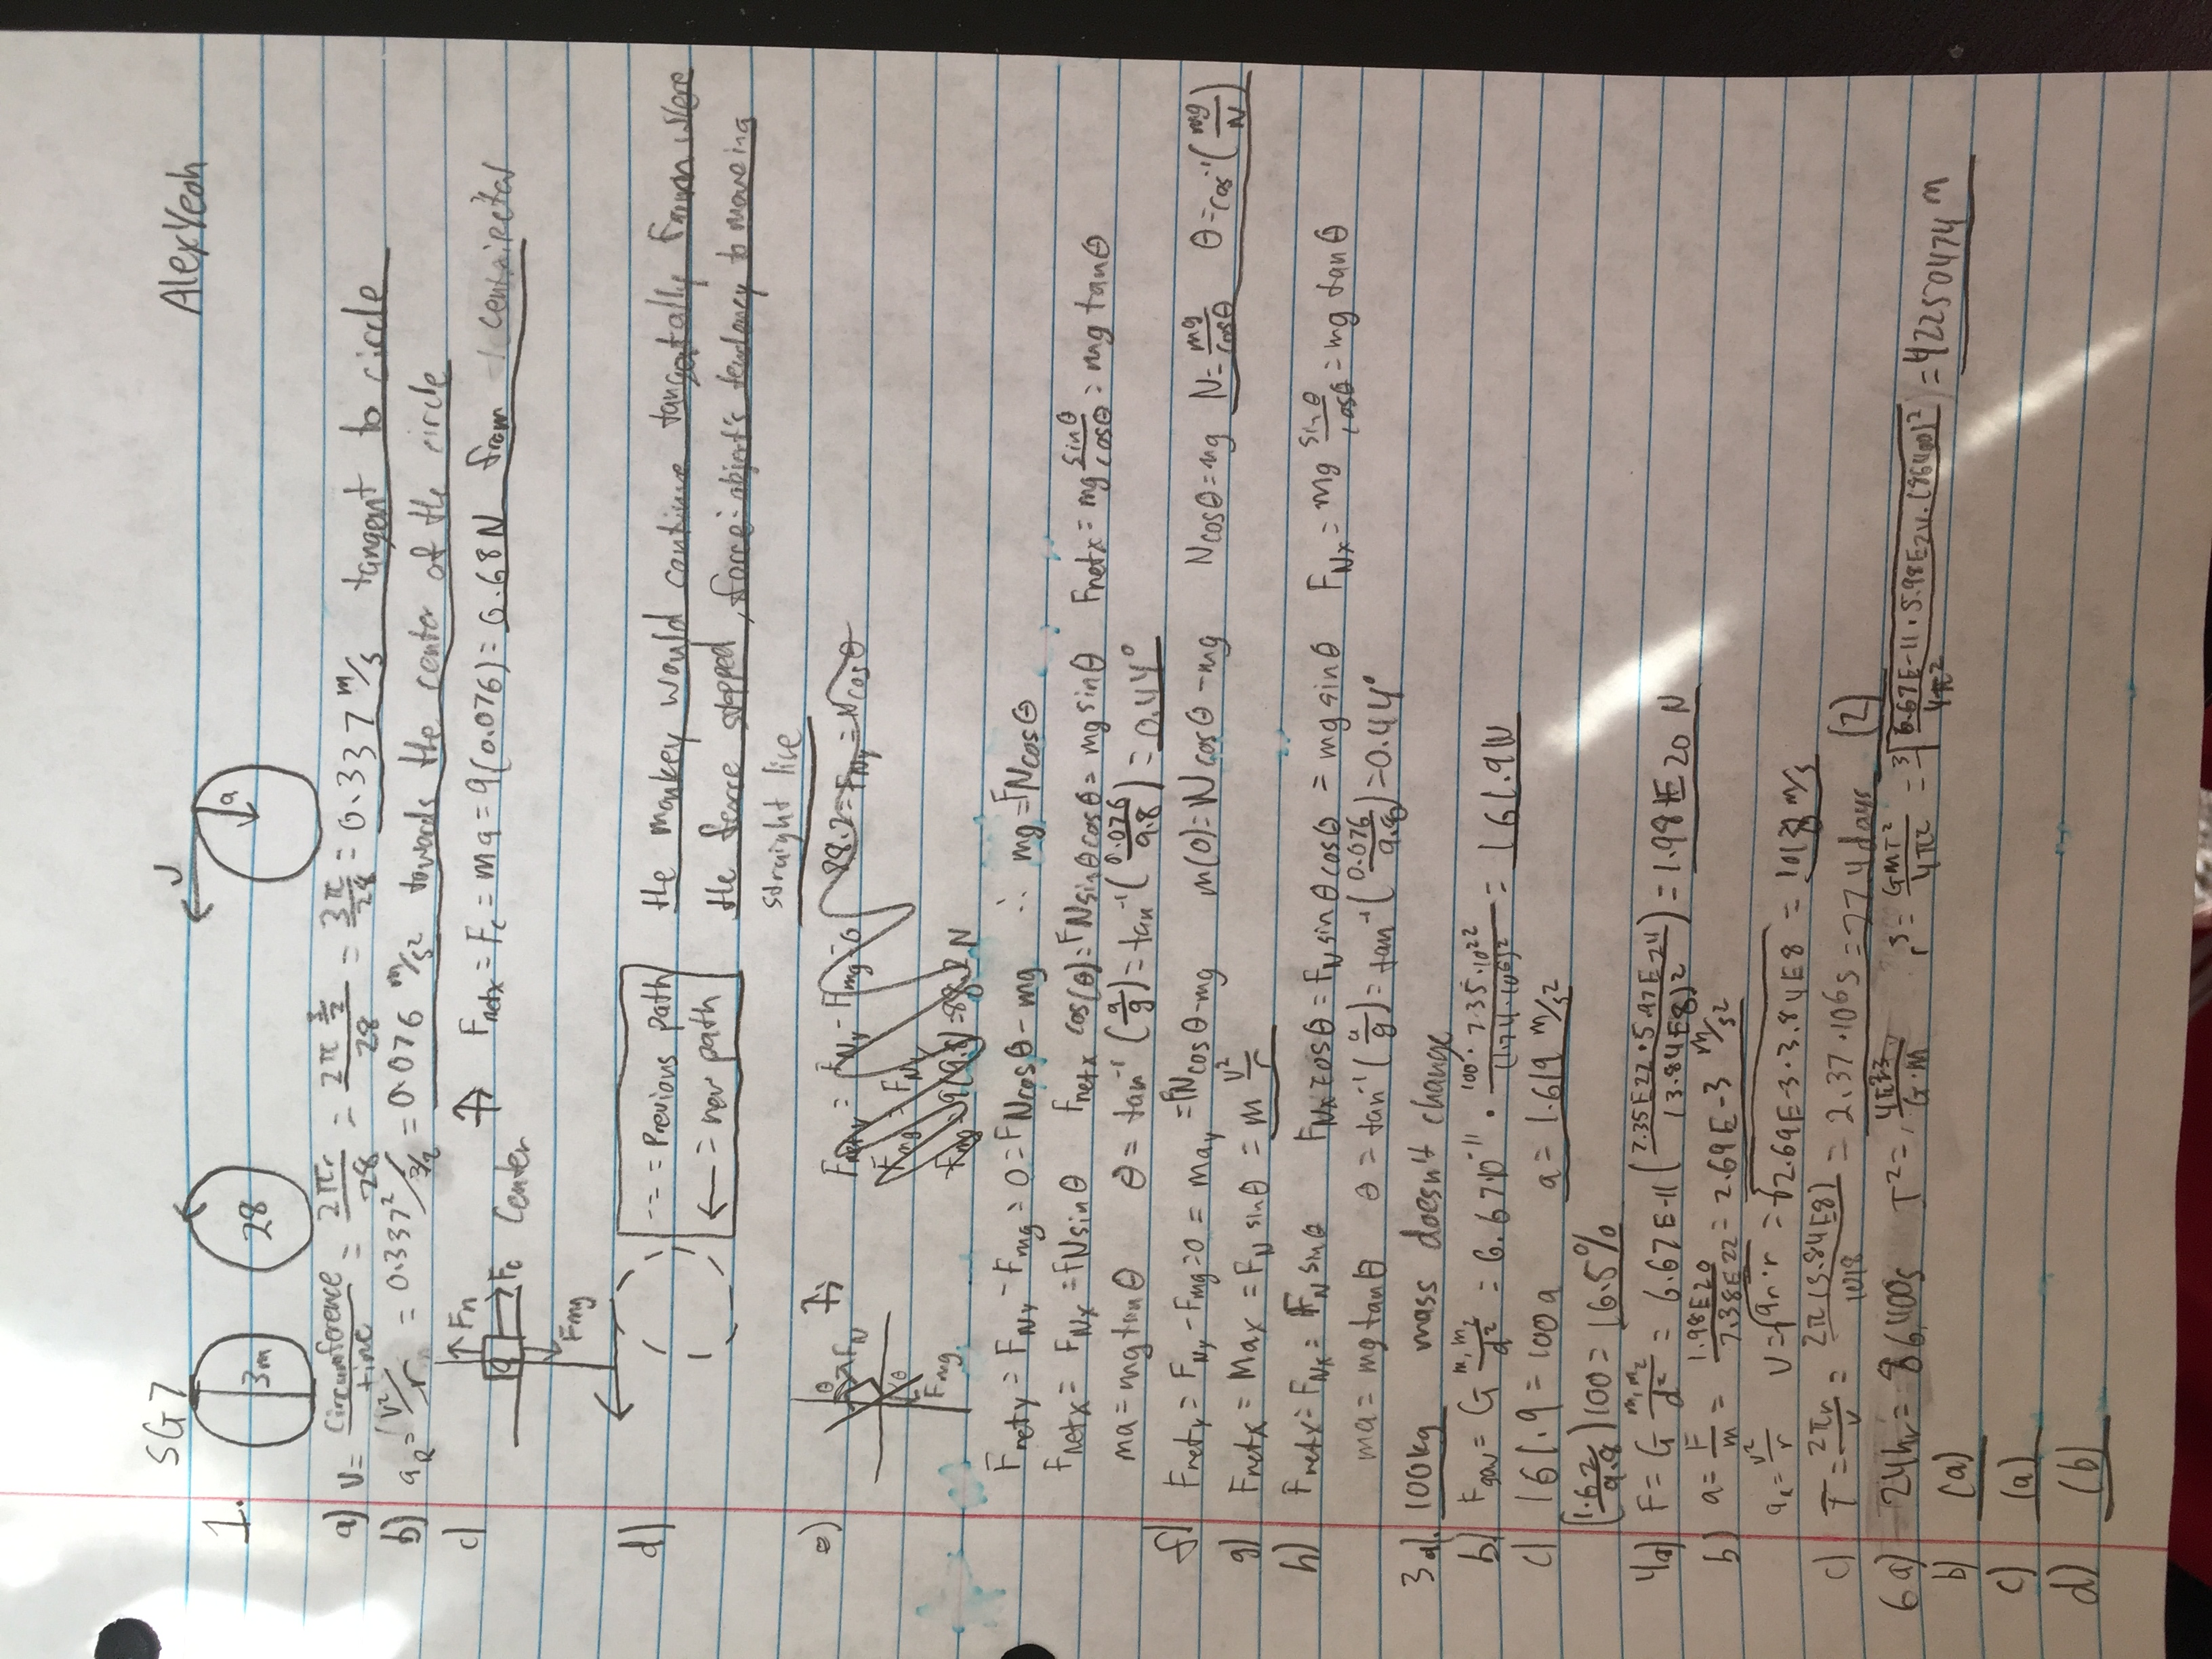 SG7
Alex Yeoh
1. 3m 28 v a
a) V = circumference/time = 2πr/28 = 2π 3/2/28 = 3π/28 = 0.337 m/s tangent to circle
b) a_R = v²/r = 0.337²/3/2 = 0.076 m/s² towards the center of the circle
c) Fn 9 Fc Center Fmg F_netx = F_c = ma = 9(0.076) = 0.68N from centripetal
d) -- = Previous path the monkey would continue tangentally from were
← = new path the force stopped, force: object's tendency to move in a
straight line
e) θ F_N θ Fmg F_nety = F_Ny - F_mg = 0 88.2 = F_Ny = N cos θ
F_mg = F_Ny
F_mg = 9(9.8) = 88.2 N
F_nety = F_Ny - F_mg = 0 = FN cos θ - mg ∴ mg = FN cos θ
F_netx = F_Nx = FN sin θ F_netx cos(θ) = FN sin θ cos θ = mg sin θ F_netx = mg sin θ/cos θ = mg tan θ
ma = mg tan θ θ = tan⁻¹(a/g) = tan⁻¹(0.076/9.8) = 0.44°
f) F_nety = F_Ny - F_mg = 0 = ma_y = FN cos θ - mg m(0) = N cos θ - mg N cos θ = mg N = mg/cos θ θ = cos⁻¹(mg/N)
g) F_netx = Max = F_N sin θ = m v²/r
h) F_netx = F_Nx = F_N sin θ F_Nx cos θ = F_N sin θ cos θ = mg sin θ F_Nx = mg sin θ/cos θ = mg tan θ
ma = mg tan θ θ = tan⁻¹(a/g) = tan⁻¹(0.076/9.8) = 0.44°
3a). 100kg mass doesn't change
b) F_grav = G m₁m₂/d² = 6.67·10⁻¹¹ · 100·7.35·10²²/(1.74·10⁶)² = 161.9N
c) 161.9 = 100a a = 1.619 m/s²
(1.62/9.8)100 = 16.5%
4a) F = G m₁m₂/d² = 6.67E-11(7.35E22·5.97E24/(3.84E8)²) = 1.98E20 N
b) a = F/m = 1.98E20/7.38E22 = 2.69E-3 m/s²
a_R = v²/r V = √(ar·r) = √(2.69E-3·3.84E8) = m/s
c) T = 2πr/v = 2π(3.84E8)/1018 = 2.37·10⁶s = 27.4 days (2)
6a) 24hr = 86,400s T² = 4π²r³/G·M r³ = GMT²/4π² = ³√(6.67E-11·5.98E24·(86400)²/4π²) = 42250474 m
b) (a)
c) (a)
d) (b)